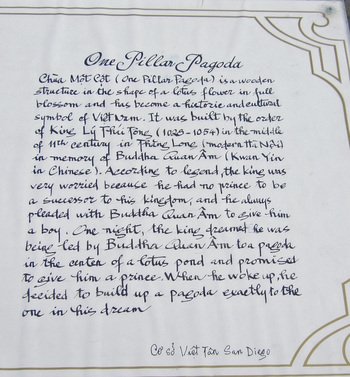 One Pillar Pagoda
Chùa Một Cột (One Pillar Pagoda) is a wooden
structure in the shape of a lotus flower in full
blossom and has become a historic and cultural
symbol of Việt Nam. It was built by the order
of King Lý Thái Tông (1028-1054) in the middle
of 11th century in Thăng Long (modern Hà Nội)
in memory of Buddha Quan Âm (Kwan Yin
in Chinese). According to legend, the king was
very worried because he had no prince to be
a successor to his kingdom, and he always
pleaded with Buddha Quan Âm to give him
a boy. One night, the king dreamt he was
being led by Buddha Quan Âm to a pagoda
in the center of a lotus pond and promised
to give him a prince. When he woke up, he
decided to build up a pagoda exactly to the
one in his dream
Cơ sở Việt Tân San Diego